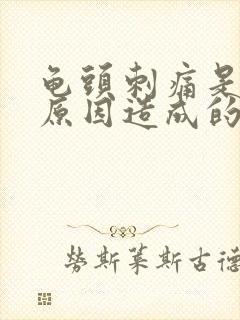 龟頭刺痛是
原因造成的
勞斯萊斯古德